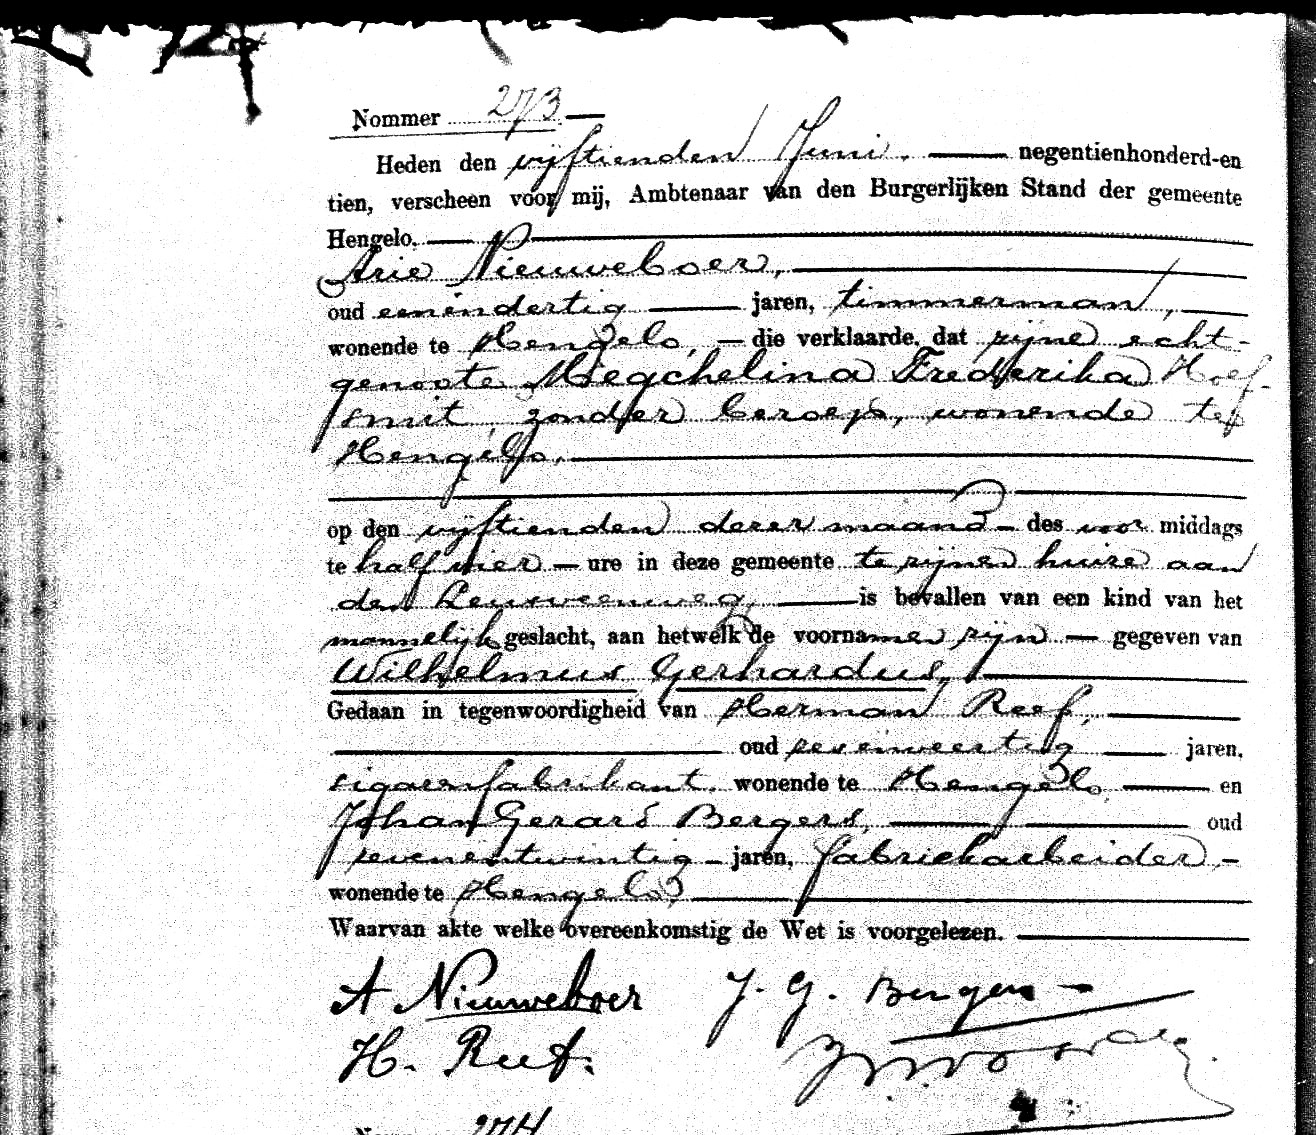 Nommer 273
Heden den vijftienden Juni. negentienhonderd-en
tien, verscheen voor mij, Ambtenaar van den Burgerlijken Stand der gemeente
Hengelo.
Arie Nieuweboer,
oud eenendertig jaren, timmerman,
wonende te Hengelo, die verklaarde, dat zijne echt-
genoote Megchelina Frederika Hoef-
smit, zonder beroep, wonende te
Hengelo,
op den vijftienden dezer maand des voor middags
te half vier ure in deze gemeente te zijnen huize aan
den is bevallen van een kind van het
mannelijk geslacht, aan hetwelk de voornamen zijn gegeven van
Wilhelmus Gerhardus,
Gedaan in tegenwoordigheid van Herman Reef,
oud jaren,
sigarenfabrikant, wonende te Hengelo, en
Johan Gerard Bergers, oud
zevenentwintig jaren, fabriekarbeider
wonende te Hengelo
Waarvan akte welke overeenkomstig de Wet is voorgelezen.
A Nieuweboer J. G. Bergers
H. Reef.
274